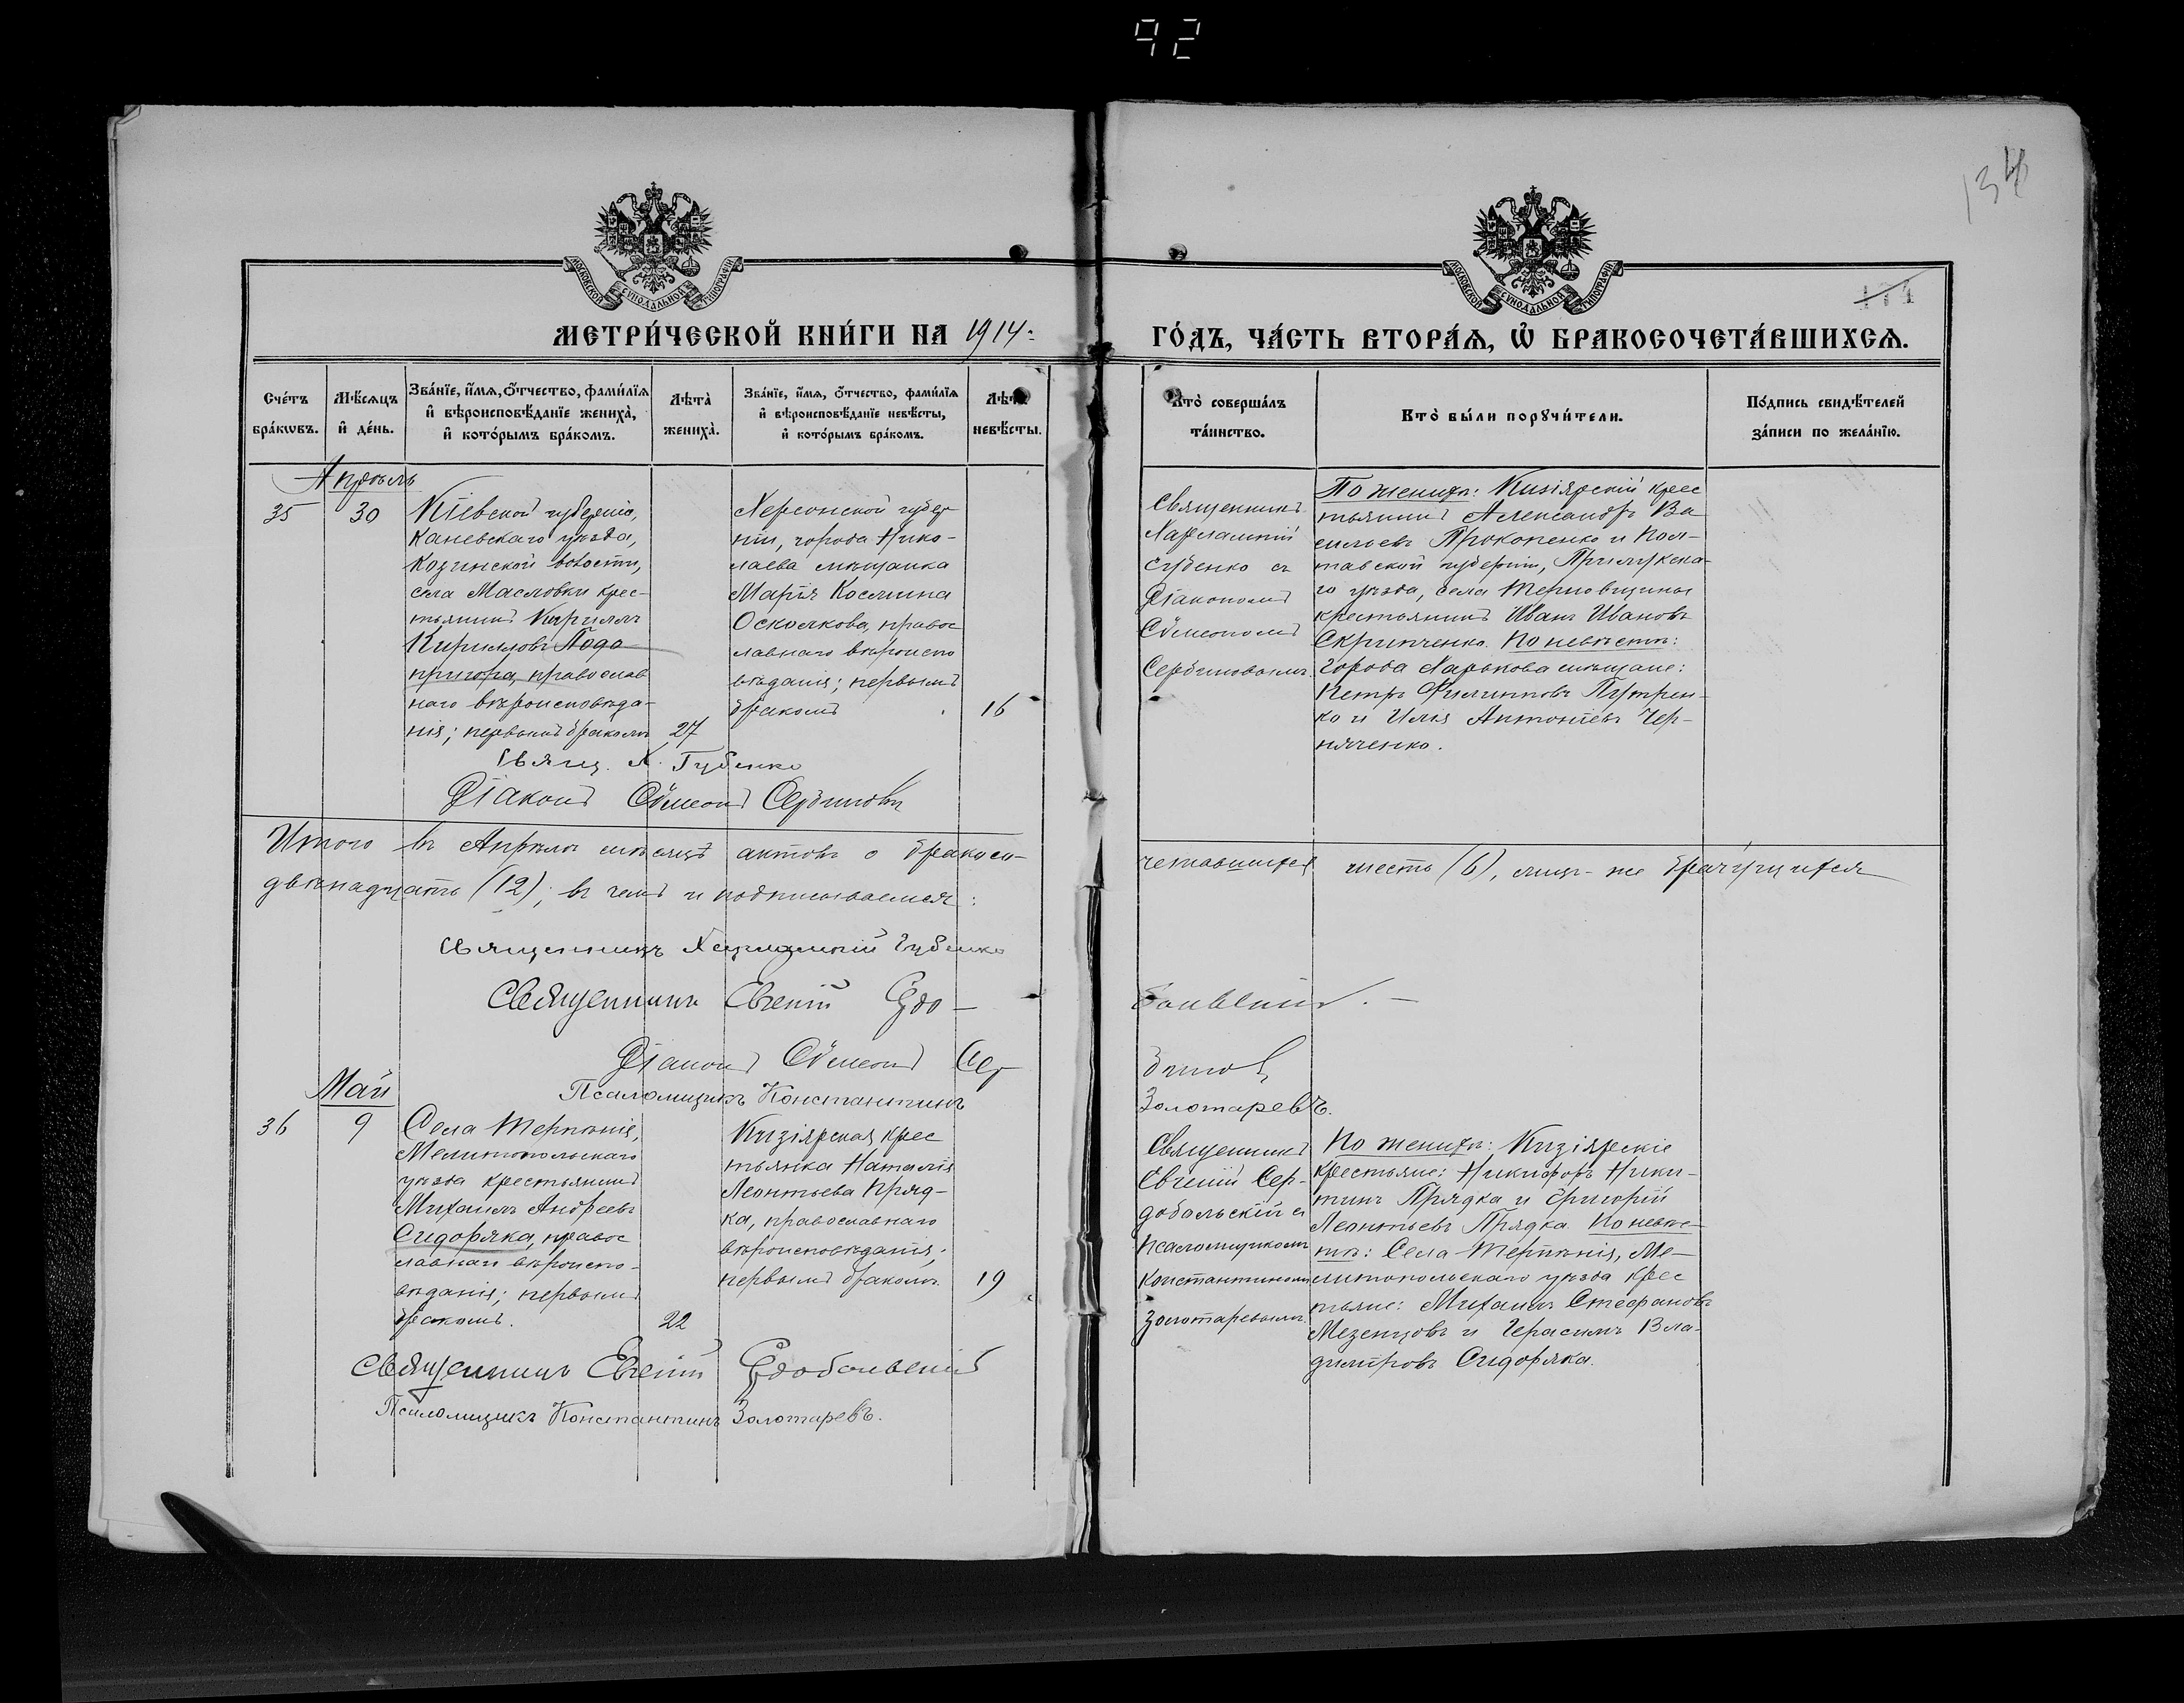 92
134
МОСКОВСКОЙ СѴНОДАЛЬНОЙ ТИПОГРАФІИ
МОСКОВСКОЙ СѴНОДАЛЬНОЙ ТИПОГРАФІИ
174
МЕТРИ́ЧЕСКОЙ КНИ́ГИ НА 1914:
ГО́ДЪ, ЧА́СТЬ ВТОРА́Ѧ, Ѡ҆ БРАКОСОЧЕТА́ВШИХСѦ.
Сче́тъ бра́кѡвъ.
Мѣ́сяцъ и҆ де́нь.
Зва́нїе, и҆́мѧ, ѻ҆́тчество, фами́лїѧ
и҆ вѣроисповѣ́данїе жениха̀,
и҆ кото́рымъ бра́комъ.
Лѣта̀ жениха̀.
Зва́нїе, и҆́мѧ, ѻ҆́тчество, фами́лїѧ
и҆ вѣроисповѣ́данїе невѣ́сты,
и҆ кото́рымъ бра́комъ.
Лѣта̀ невѣ́сты.
Кто̀ соверша́лъ
та́инство.
Кто̀ бы́ли порꙋчи́тели.
По́дпись свидѣ́телей
за́писи по жела́нїю.
Апрѣль
35
30
Кіевской губерніи,
Каневскаго уѣзда,
Козинской волости,
села Масловки крес-
тьянинъ Кириллъ
Кирилловъ Подо-
пригора, православ
наго вѣроисповѣда-
нія; первымъ бракомъ
27
Херсонской губер
ніи, города Нико-
лаева мѣщанка
Марія Космина
Осколкова, правос
лавнаго вѣроиспо
вѣданія; первымъ
бракомъ
16
Священникъ
Харлампій
Губенко съ
Діакономъ
Сѵмеономъ
Сербиновымъ.
По женихѣ: Кизіярскій крес
тьянинъ Александръ Ва
сильевъ Прокопенко и Пол-
тавской губерніи, Прилукска-
го уѣзда, села Терновщины
крестьянинъ Иванъ Ивановъ
Скрипченко. По невѣстѣ:
города Харькова мѣщане:
Петръ Филипповъ
ко и Илія Антоніевъ Чер-
няченко.
Свящ. Х. Губенко
Діаконъ Сѵмеонъ Сербиновъ
Итого въ Апрѣлѣ мѣсяцѣ актовъ о бракосо-
четавшихся шесть (6), лицъ-же брачущихся
двѣнадцать (12); въ чемъ и подписываемся:
Священникъ Харлампій Губенко
Священникъ Евгеній Сердо-
больскій. —
Діаконъ Сѵмеонъ Сер
биновъ
Псаломщикъ Константинъ
Золотаревъ.
Май
36
9
Села Терпѣнія,
Мелитопольскаго
уѣзда крестьянинъ
Михаилъ Андреевъ
Сидоряка, правос
лавнаго вѣроиспо-
вѣданія; первымъ
бракомъ.
22
Кизіярская крес
тьянка Наталія
Леонтьева Пряд-
ка, православнаго
вѣроисповѣданія;
первымъ бракомъ.
19
Священникъ
Евгеній Сер-
добольскій съ
псаломщикомъ
Константиномъ
Золотаревымъ.
По женихѣ: Кизіярскіе
крестьяне: Никифоръ Ники-
тинъ Прядка и Григорій
Леонтьевъ Прядка. По невѣс-
тѣ: Села Терпѣнія, Ме-
литопольскаго уѣзда крес
тьяне: Михаилъ Стефановъ
Мезенцовъ и Герасимъ Вла-
диміровъ Сидоряка.
Священникъ Евгеній Сердобольскій
Псаломщикъ Константинъ Золотаревъ.